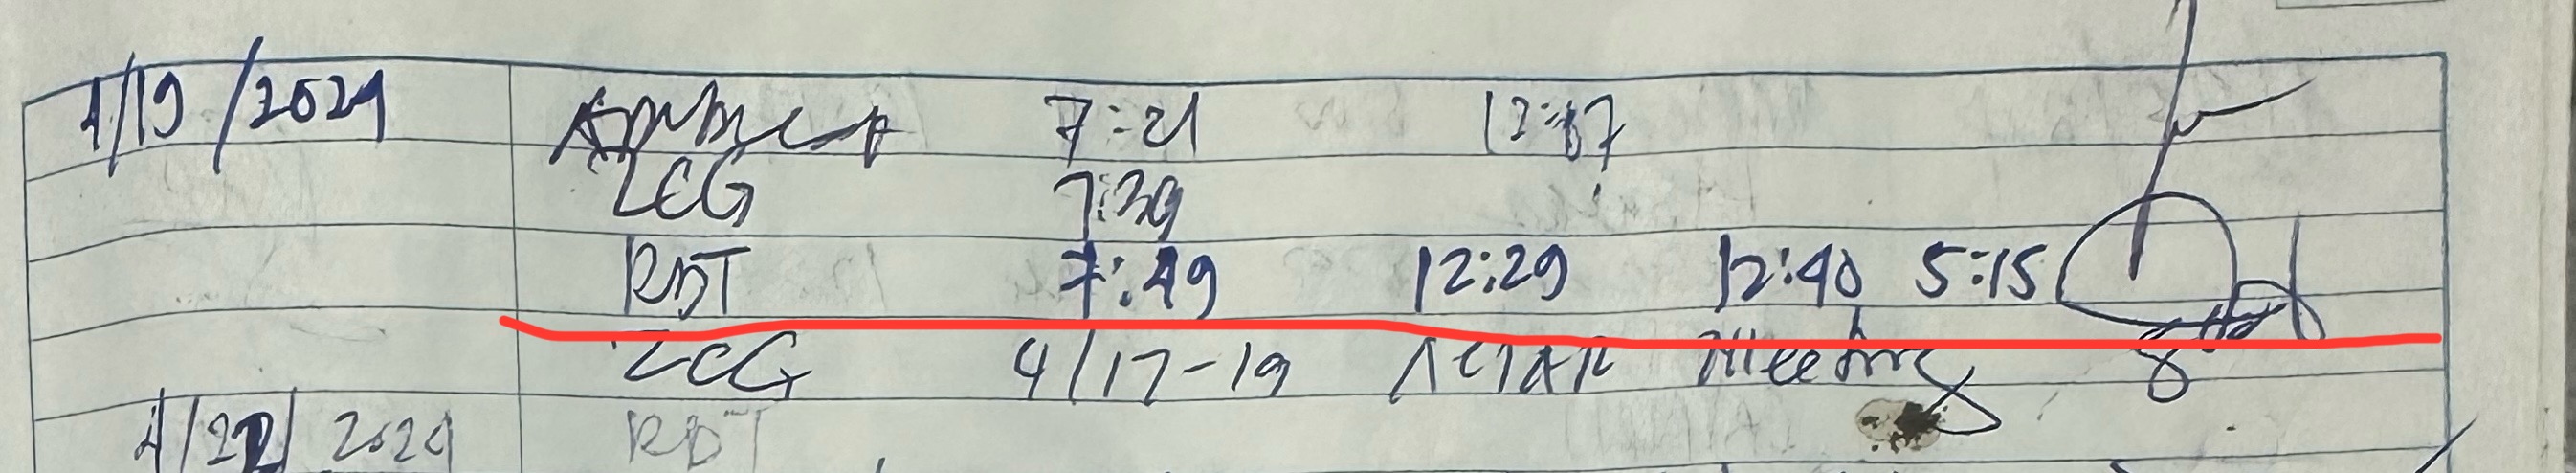 4/19/2024 7:21 12:17
LCG 7:39
RDT 7:49 12:29 12:40 5:15
LCG 4/17-19 Meeting
4/22/2024 RDT